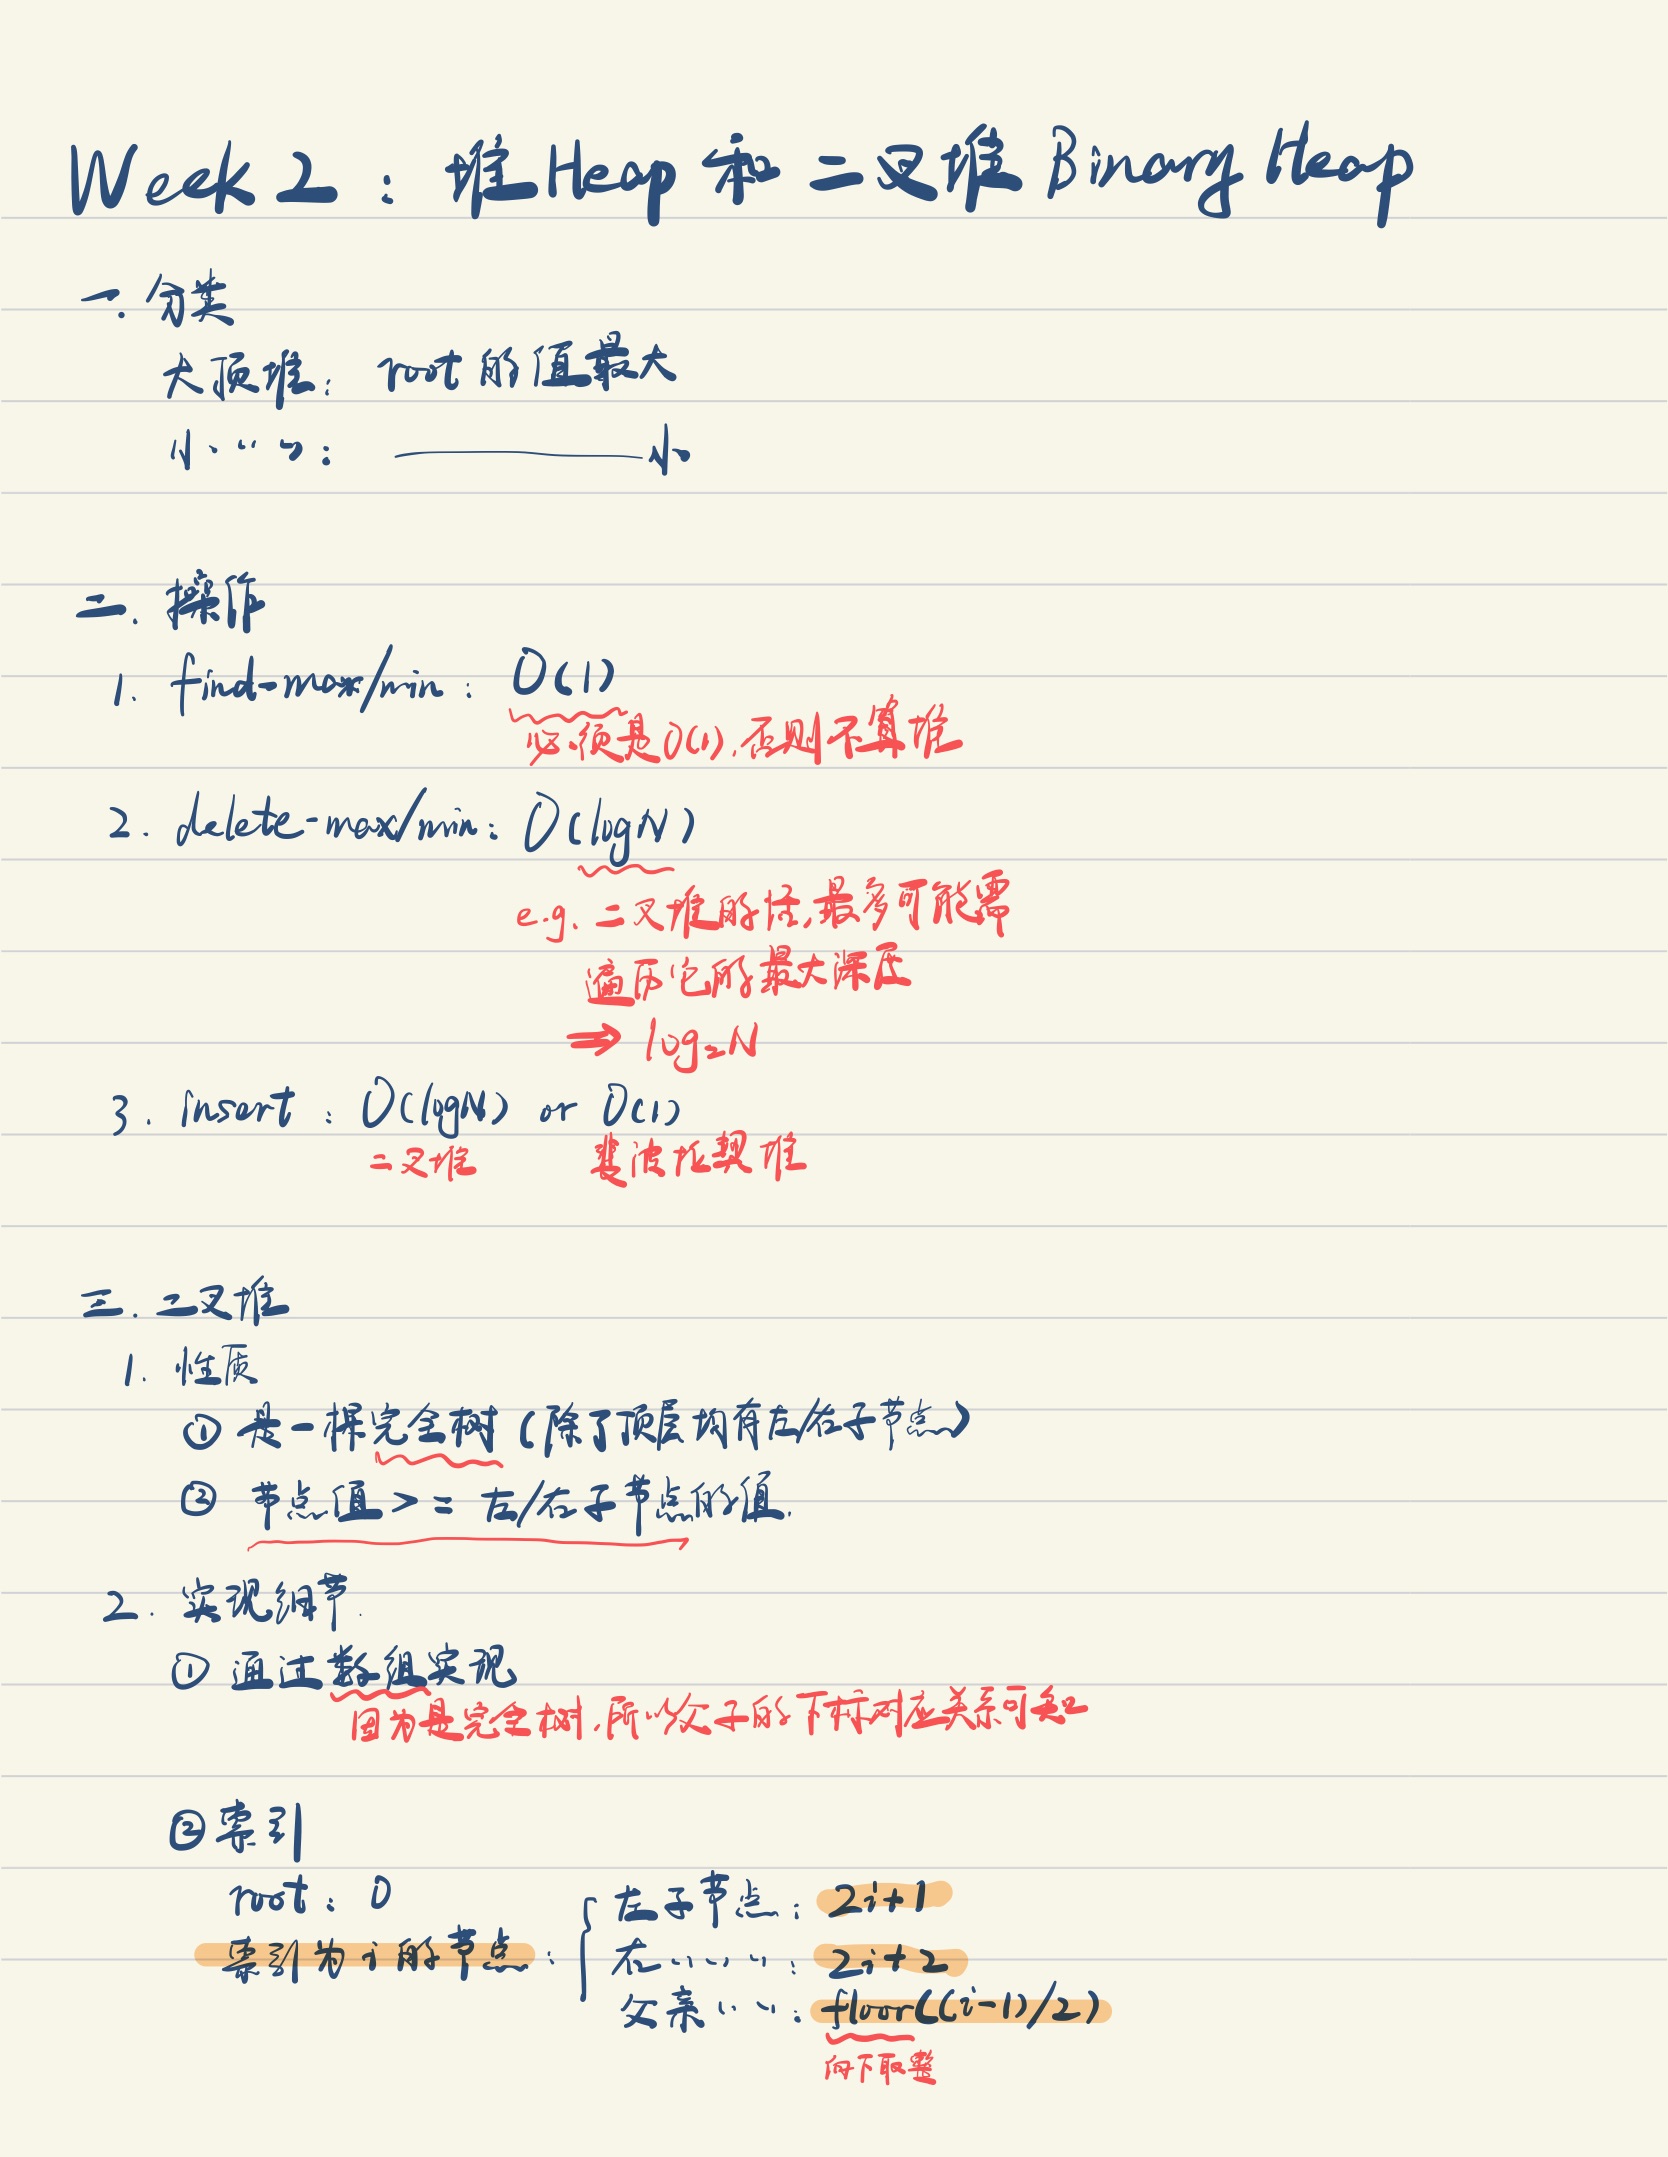 Week 2：堆 Heap 和 二叉堆 Binary Heap
一. 分类
大顶堆： root 的值最大
小 〃 〃： ———— 小
二. 操作
1. find-max/min： O(1)
必须是O(1).否则不算堆
2. delete-max/min： O(logN)
e.g. 二叉堆的话,最多可能需
遍历它的最大深度
⇒ log₂N
3. insert： O(logN) or O(1)
二叉堆 斐波拉契堆
三. 二叉堆
1. 性质
① 是一棵完全树 (除了顶层均有左/右子节点)
② 节点值 >= 左/右子节点的值.
2. 实现细节.
① 通过数组实现
因为是完全树,所以父子的下标对应关系可知
② 索引
root： 0
左子节点： 2i+1
索引为 i 的节点：
右 〃 〃 〃： 2i+2
父亲 〃 〃： floor((i-1)/2)
向下取整